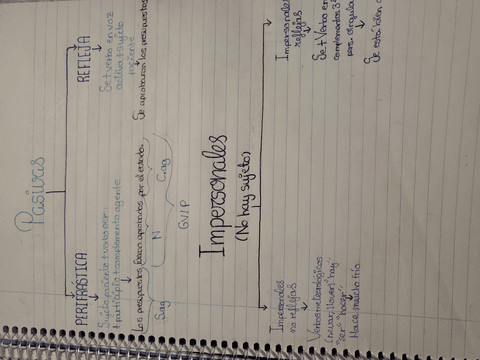 Pasivas
PERIFRÁSTICA
Sujeto paciente + verbo ser +
+ participio + complemento agente
Los presupuestos fueron aprobados por el estado.
Sag
N
C.ag
GVIP
REFLEJA
Se + verbo en voz
activa + sujeto
paciente
Se aprobaron los presupuestos
Impersonales
(No hay sujeto)
Impersonales
no reflejas
Verbos meteorológicos
(nevar, llover) "hay"
"ser" "hacer"
Hace mucho frío
Impersonales
reflejas
Se + Verbo en
complementos 3ª
pers. singula
Se está